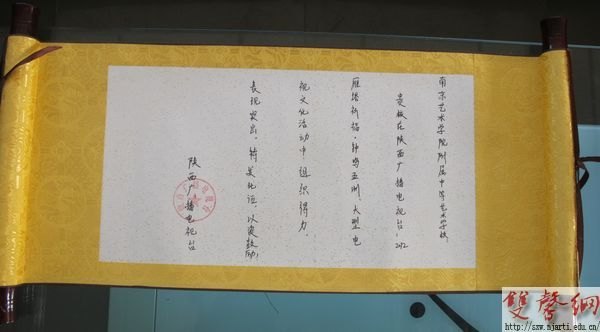 南京艺术学院附属中等艺术学校
贵校在陕西广播电视台，2012
雁塔祈福·钟鸣亚洲，大型电
视文化活动中组织得力，
表现突出，特发此证，以资鼓励，
陕西广播电视台
雙馨網
http://szw.njarti.edu.cn/